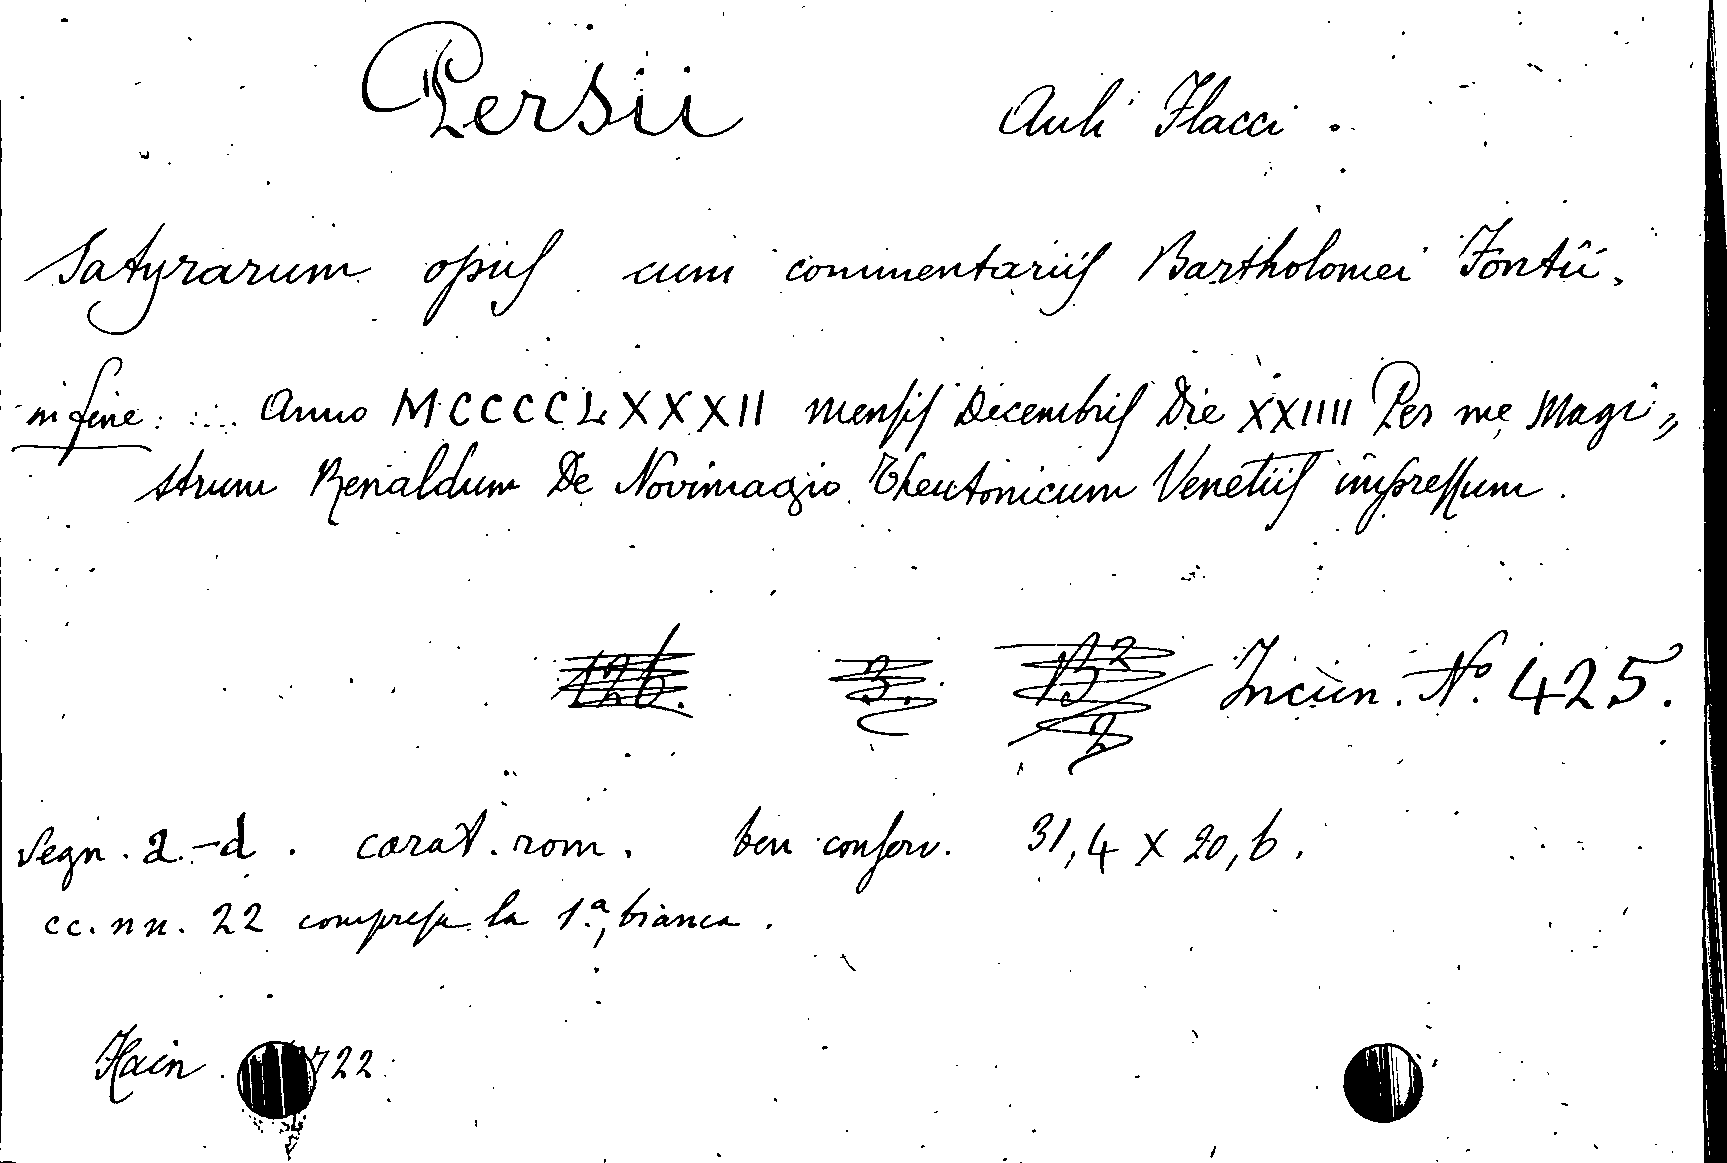 Persii Auli Flacci.
Satyrarum opus cum commentariis Bartholomei Fontii.
in fine: ... Anno MCCCCLXXXII mensis Decembris Die XXIIII Per me Magi„
strum Renaldum De Novimagio Theutonicum Venetiis impressum.
126. 3. B2 2 Incun. No. 425.
Segn. a-d. carat. rom. ben conserv. 31,4 X 20,6.
cc. nn. 22 compresa la 1.a, bianca.
Hain 722